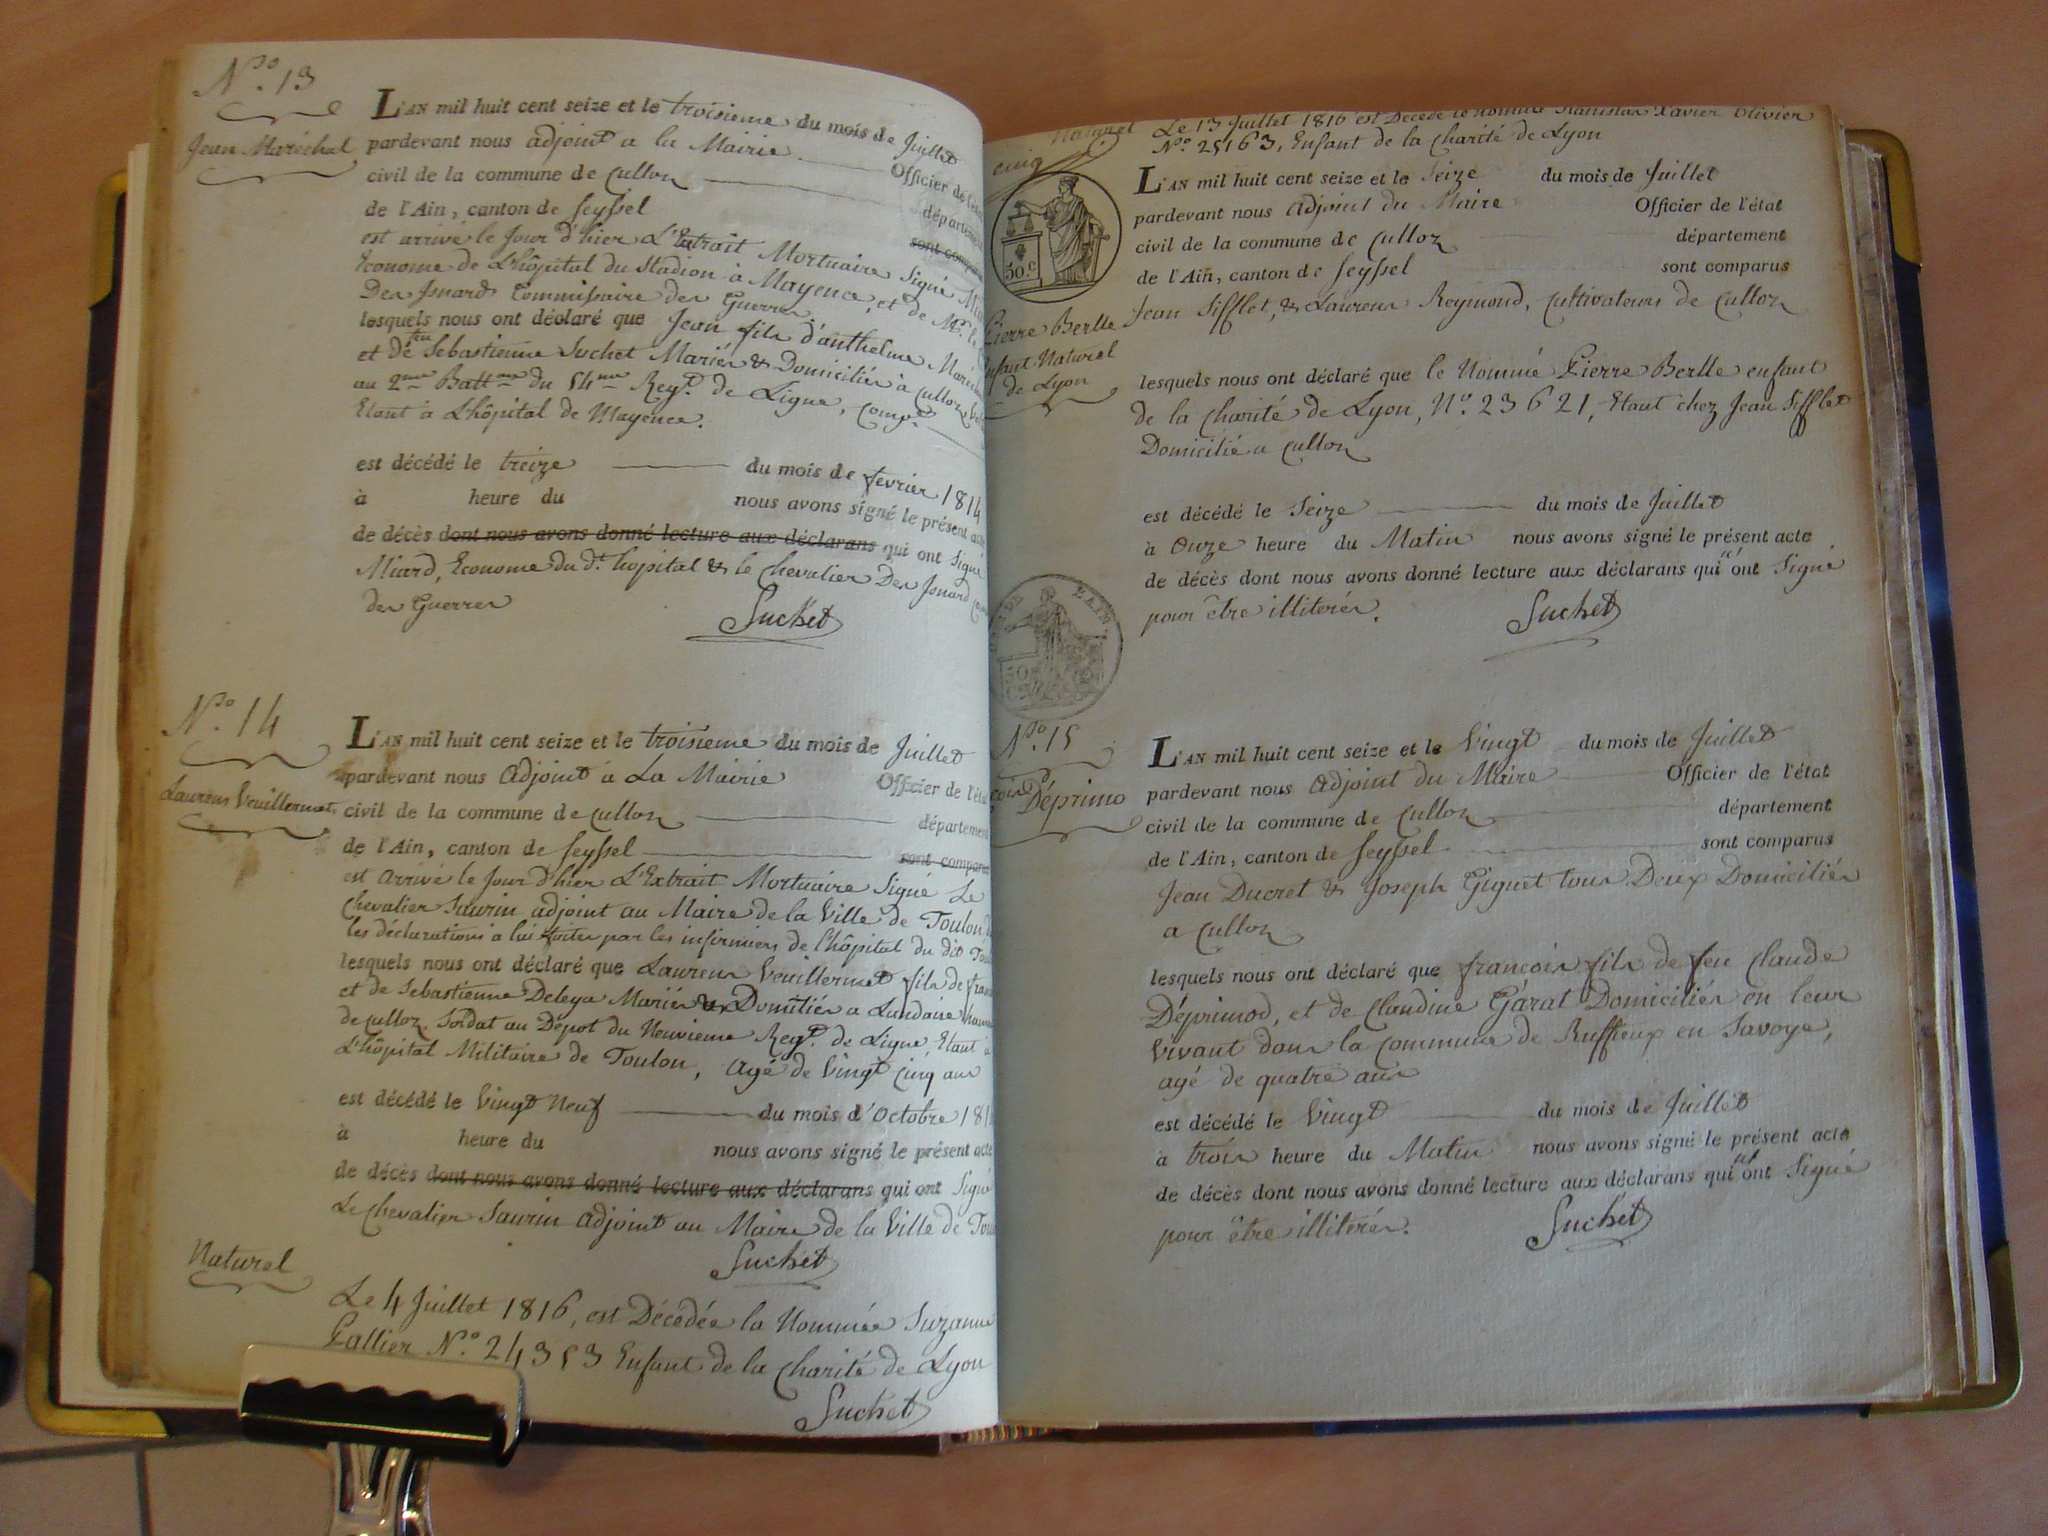 N.° 13
Jean Maréchal
L'AN mil huit cent seize et le troisieme du mois de Juillet
pardevant nous adjoint a la Mairie Officier de l'état
civil de la commune de Culloz département
de l'Ain, canton de Seyssel sont compar
est arrivé le Jour d'hier L'Extrait Mortuaire Signé
Econome de L'hôpital du Stadion à Mayence, et de Mr. le
Des Isnards Commissaire des Guerres
lesquels nous ont déclaré que Jean fils d'anthelme Maréch
et de feu Sebastienne Suchet Mariés & Domiciliés à Culloz
au 2me Batton du 54me Regt. de Ligne, Comp.
Etant à L'hôpital de Mayence.
est décédé le treize du mois de fevrier 1814
à heure du nous avons signé le présent acte
de décès dont nous avons donné lecture aux déclarans qui ont Signé
Miard, Econome du dt. hopital & le Chevalier Des Isnard
des Guerres
Suchet
N.° 14
Laurens Veuillermet
L'AN mil huit cent seize et le troisieme du mois de Juillet
pardevant nous Adjoint à La Mairie Officier de l'état
civil de la commune de Culloz département
de l'Ain, canton de Seyssel sont comparus
est Arrivé le Jour d'hier L'Extrait Mortuaire Signé Le
Chevalier Saurin adjoint au Maire de la Ville de Toulon
les déclarations a lui faites par les infirmiers de l'hôpital du dit
lesquels nous ont déclaré que Laurens Veuillermet fils de
et de Sebastienne Deleya Mariés & Domiliés a Landaise
de Culloz, Soldat au Dépot du Neuvieme Regt. de Ligne, Etant à
L'hôpital Militaire de Toulon, agé de Vingt Cinq ans
est décédé le Vingt Neuf du mois d'Octobre 181
à heure du nous avons signé le présent acte
de décès dont nous avons donné lecture aux déclarans qui ont Signé
Le Chevalier Saurin Adjoint au Maire de la Ville de
Suchet
Naturel
Le 4 Juillet 1816, est Décédée la Nommée Suzanne
Gallier N.° 24353 Enfant de la Charité de Lyon
Suchet
Naturel
Le 13 Juillet 1816 est Décédé le nommé Stanislas Xavier Olivier
N.° 25163, Enfant de la Charité de Lyon
50.c
Pierre Berlle
Enfant Naturel
de Lyon
L'AN mil huit cent seize et le Seize du mois de Juillet
pardevant nous Adjoint du Maire Officier de l'état
civil de la commune de Culloz département
de l'Ain, canton de Seyssel sont comparus
Jean Sifflet, & Laurens Reymond, Cultivateurs de Culloz
lesquels nous ont déclaré que le Nommé Pierre Berlle enfant
de la Charité de Lyon, N.° 23621, Etant chez Jean Sifflet
Domicilié a Culloz
est décédé le Seize du mois de Juillet
à Onze heure du Matin nous avons signé le présent acte
de décès dont nous avons donné lecture aux déclarans qui n'ont Signé
pour être illiterés. Suchet
N.° 15
Déprimo
L'AN mil huit cent seize et le Vingt du mois de Juillet
pardevant nous Adjoint du Maire Officier de l'état
civil de la commune de Culloz département
de l'Ain, canton de Seyssel sont comparus
Jean Ducret & Joseph Giguet tous Deux Domiciliés
a Culloz
lesquels nous ont déclaré que francois fils de feu Claude
Déprimod, et de Claudine Gárat Domiciliés en leur
Vivant dans la Commune de Ruffieux en Savoye,
agé de quatre ans
est décédé le Vingt du mois de Juillet
à trois heure du Matin nous avons signé le présent acte
de décès dont nous avons donné lecture aux déclarans qui n'ont Signé
pour être illiterés. Suchet